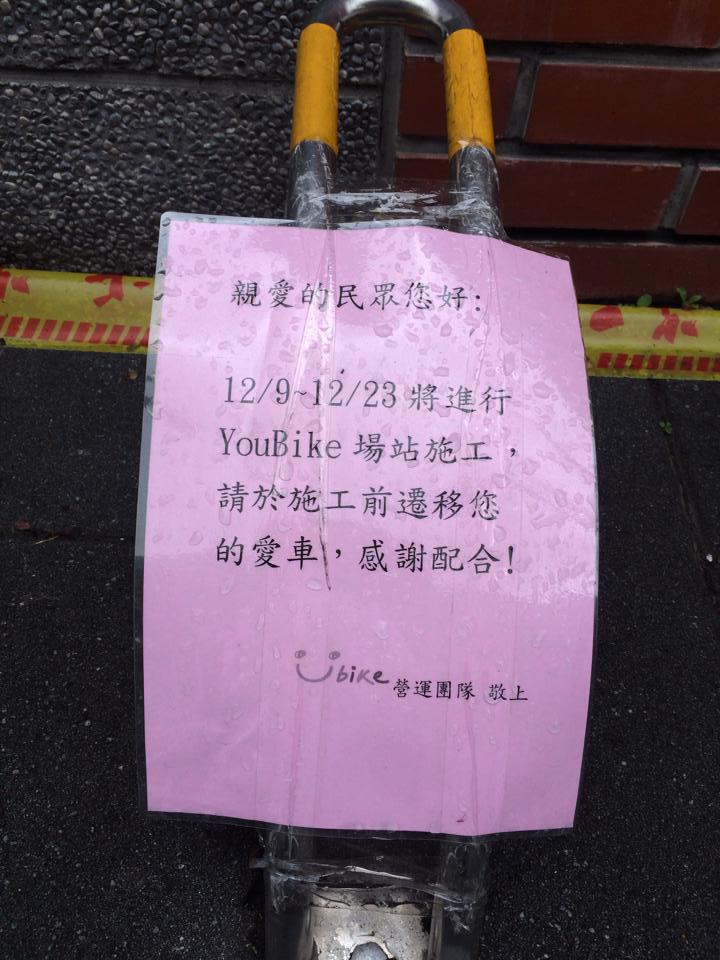 親愛的民眾您好:
12/9~12/23 將進行
YouBike 場站施工，
請於施工前遷移您
的愛車，感謝配合!
Ubike 營運團隊 敬上